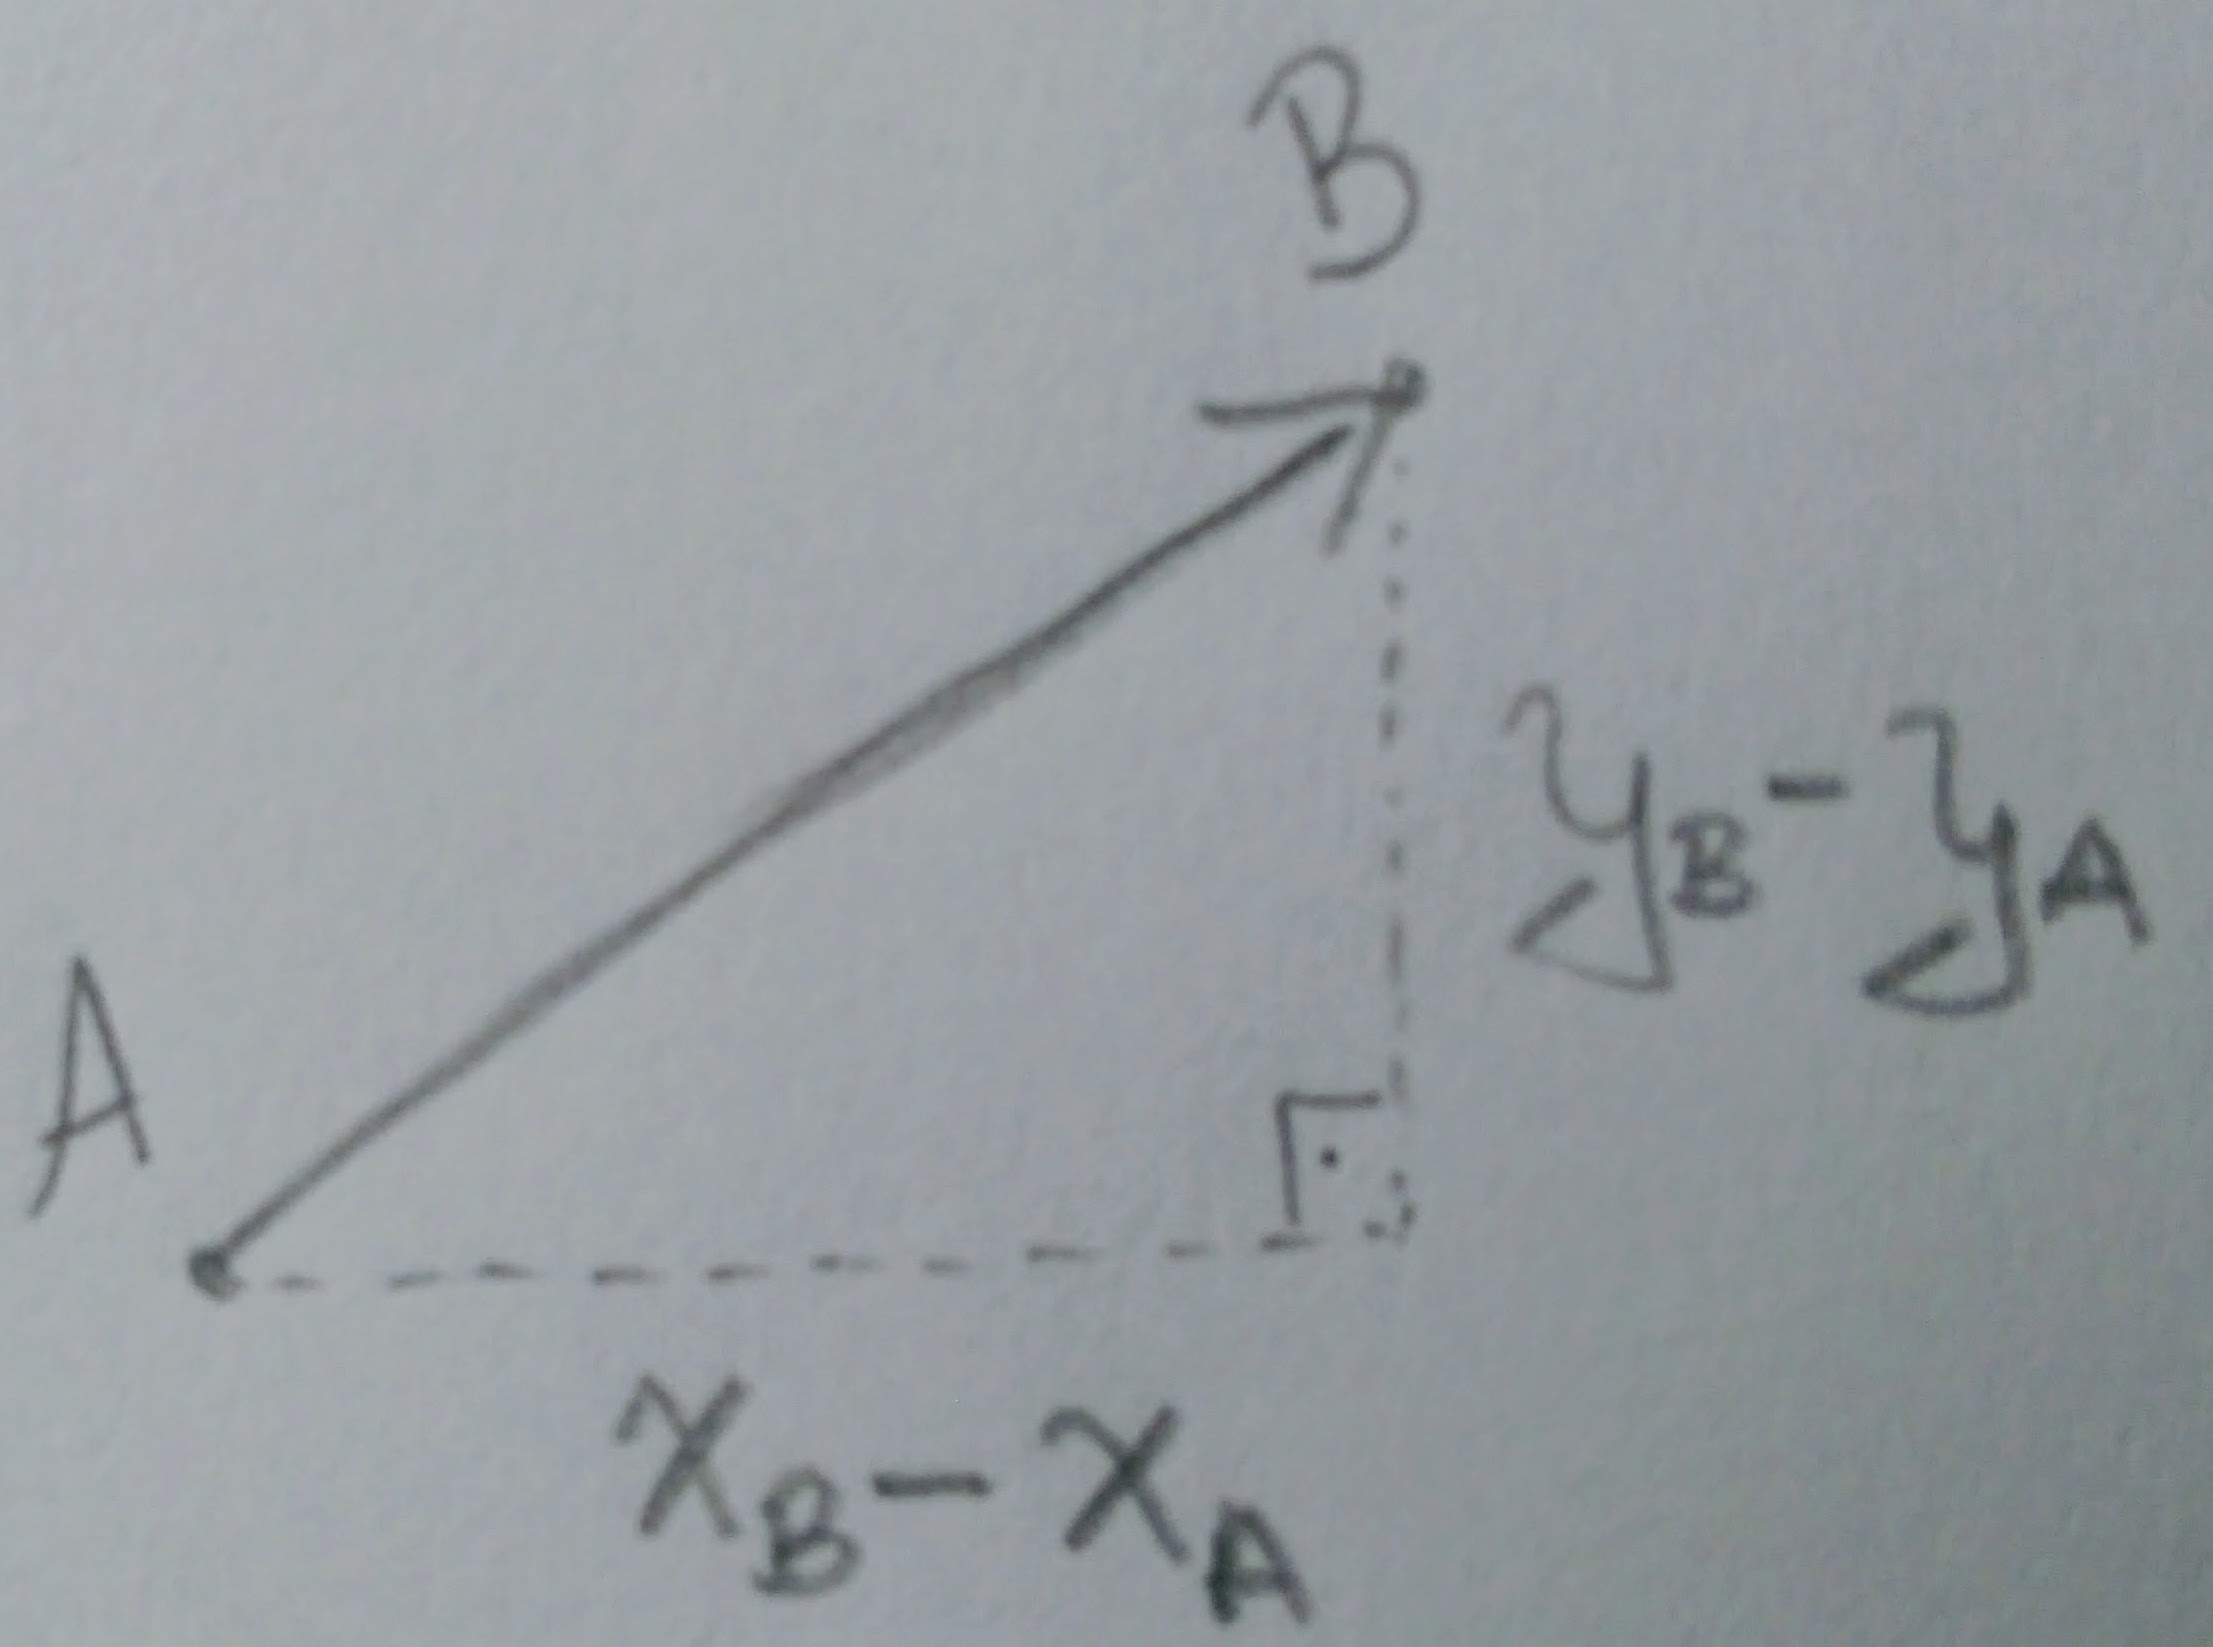 B
y_B - y_A
A
x_B - x_A